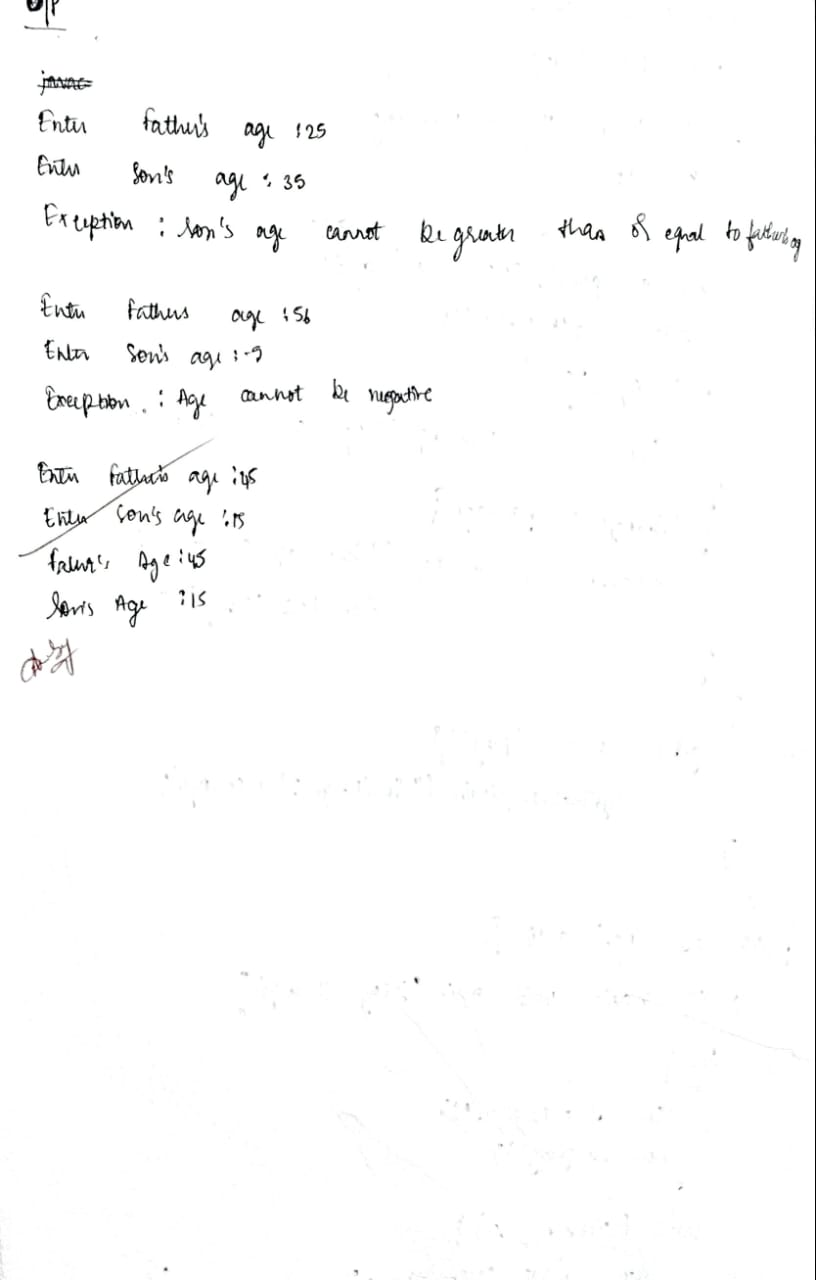 O/P
Enter father's age : 25
Enter Son's age : 35
Exception : Son's age cannot be greater than or equal to father's ag
Enter fathers age : 56
Enter Son's age : -9
Exception : Age cannot be negative
Enter father's age : 45
Enter Son's age : 15
father's Age : 45
Son's Age : 15